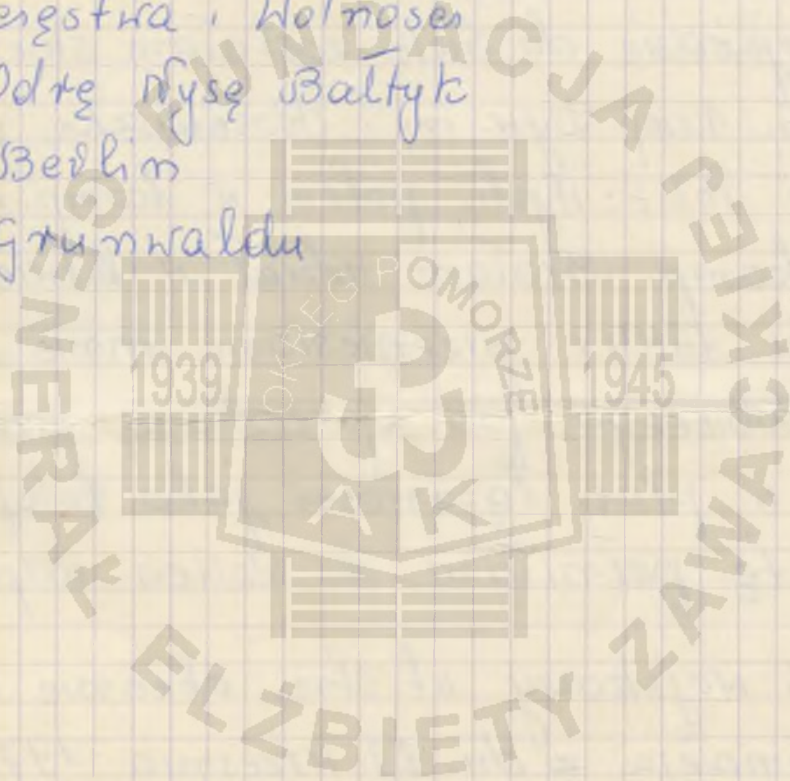 Wolnosci
Odrę Nysę Bałtyk
Berlin
Grunwaldu
FUNDACJA GENERAŁ ELŻBIETY ZAWACKIEJ
OKRĘG POMORZE
1939
1945
AK